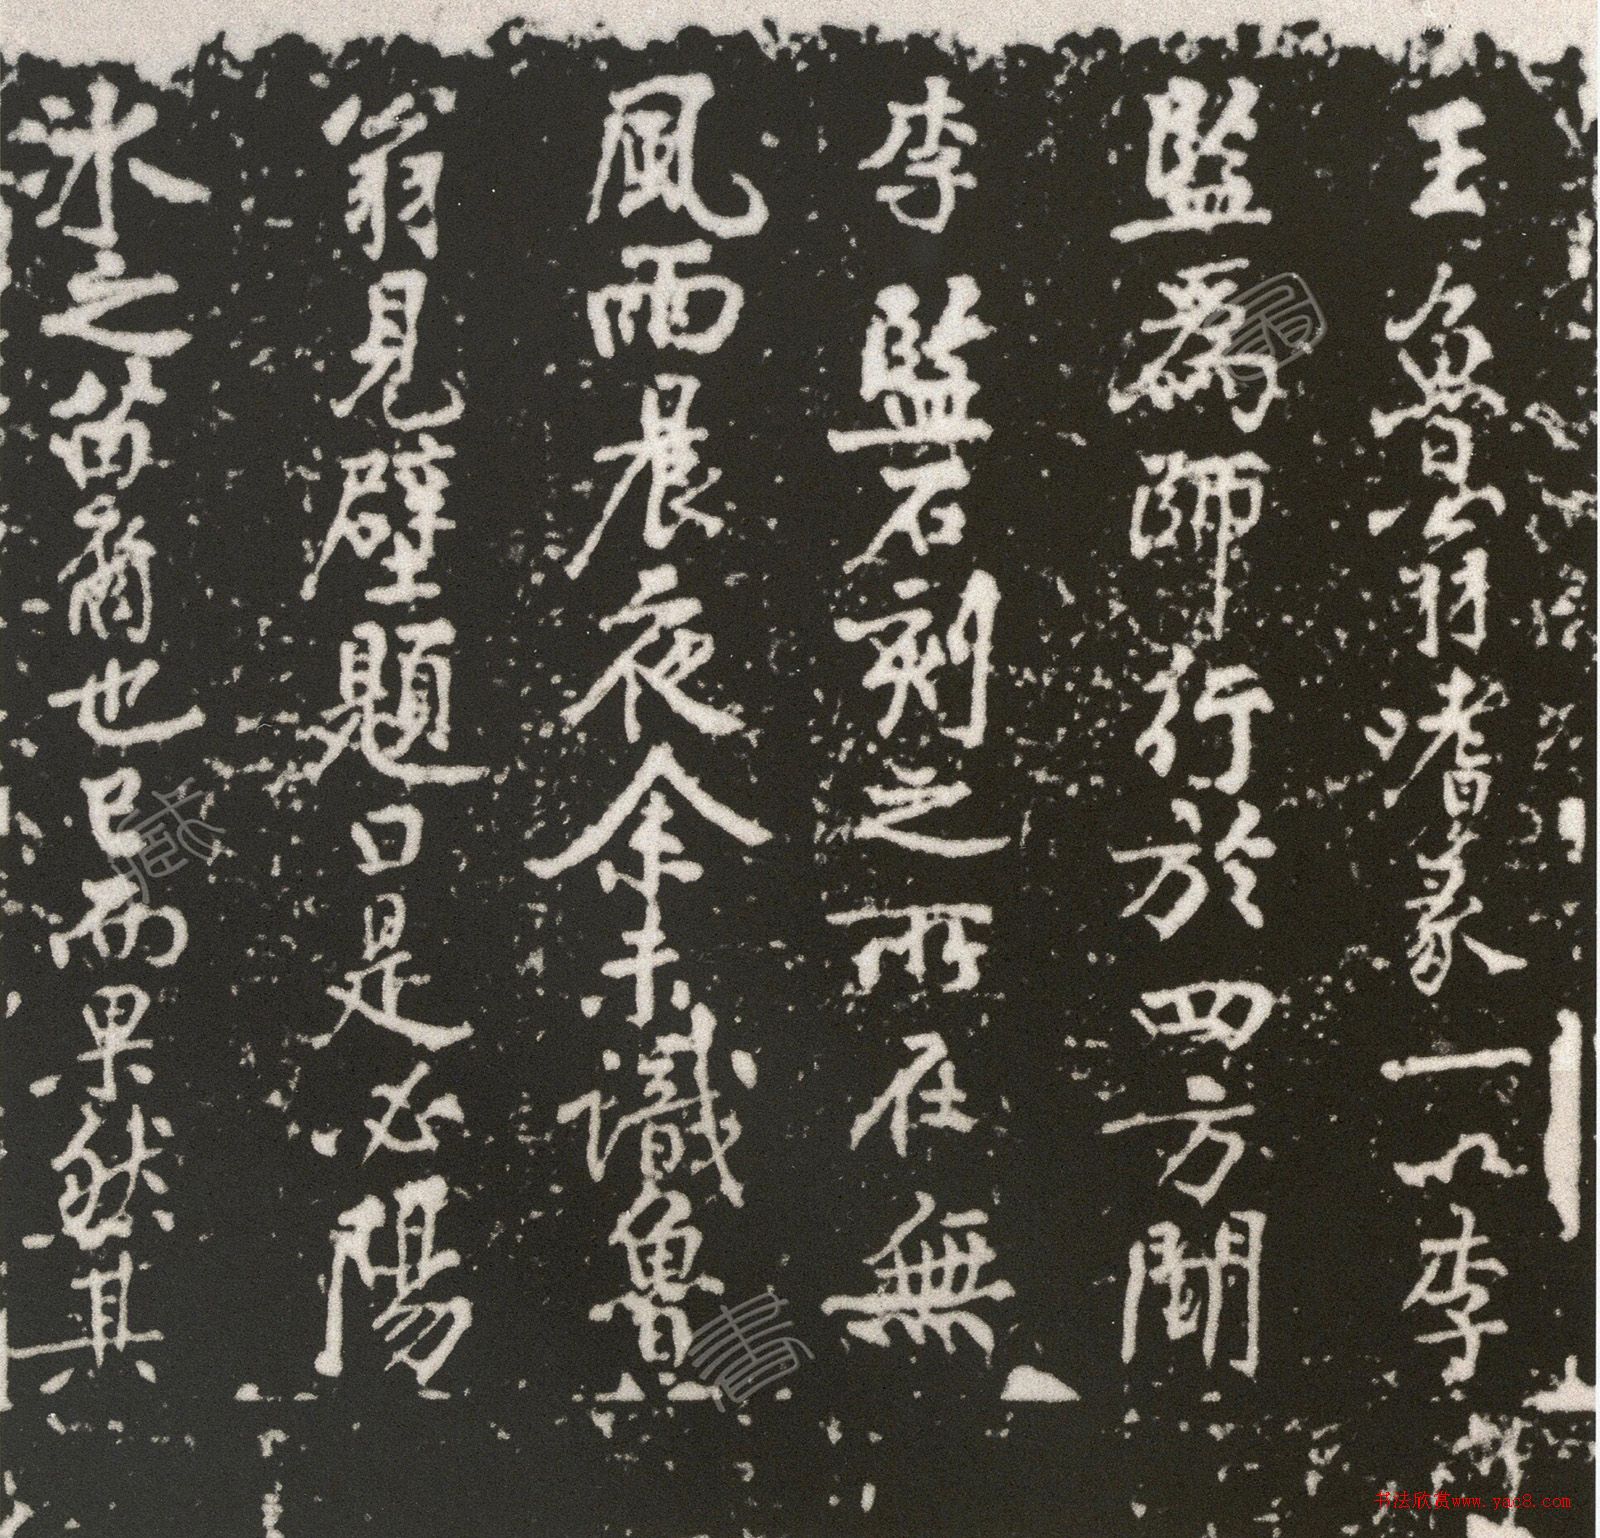 王魯公羽嗜篆一以李
監為師行於四方聞
李監石刻之所在無
風雨晨夜余未識魯
翁見壁題曰是必陽
冰之苗裔也已而果然其
书法欣赏www.yac8.com